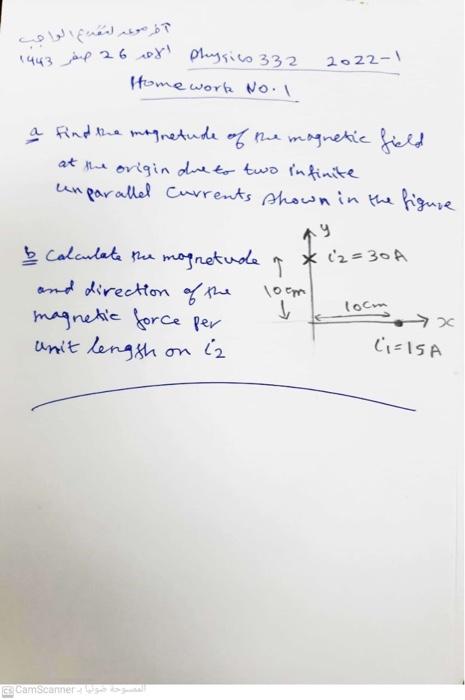 آخر موعد لتقديم الواجب
الأحد 26 صفر 1443 Physics 332 2022-1
Homework No. 1
a Find the magnetude of the magnetic field
at the origin due to two infinite
unparallel currents shown in the figure
y
b Calculate the magnetude
i2 = 30A
and direction of the
10 cm
10cm
magnetic force per
x
unit length on i2
i1 = 15A
CS CamScanner الممسوحة ضوئيا بـ